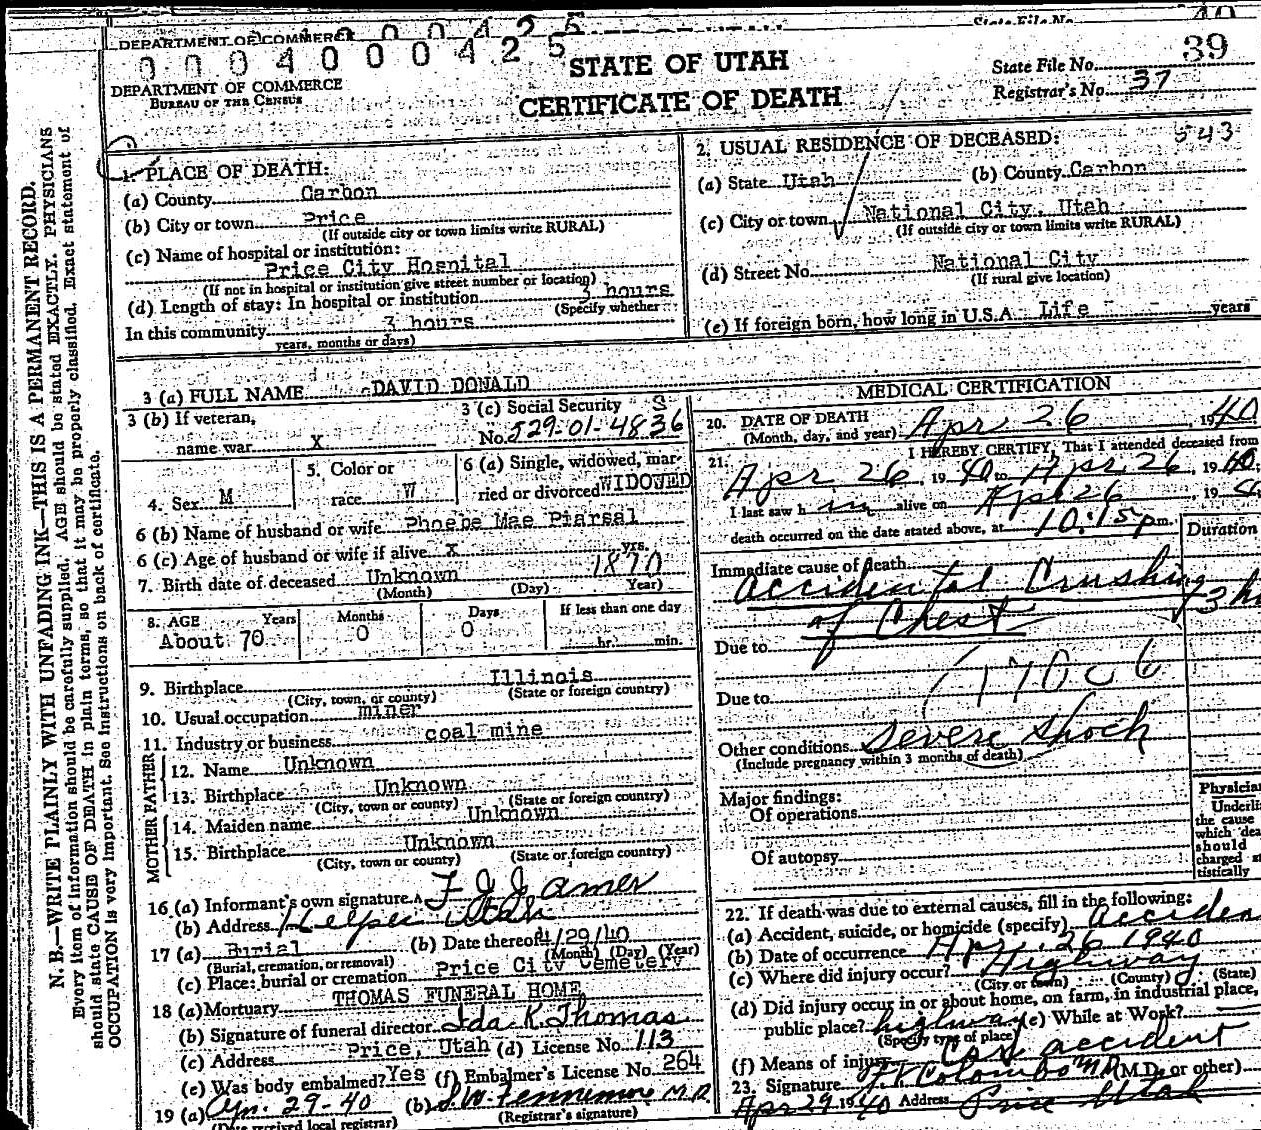 DEPARTMENT OF COMMERCE
State File No. 40
0004000425
DEPARTMENT OF COMMERCE
BUREAU OF THE CENSUS
STATE OF UTAH
CERTIFICATE OF DEATH
State File No. 39
Registrar's No. 37
N. B.—WRITE PLAINLY WITH UNFADING INK—THIS IS A PERMANENT RECORD.
Every item of information should be carefully supplied. AGE should be stated EXACTLY. PHYSICIANS
should state CAUSE OF DEATH in plain terms, so that it may be properly classified. Exact statement of
OCCUPATION is very important. See instructions on back of certificate.
1. PLACE OF DEATH:
(a) County Carbon
(b) City or town Price
(If outside city or town limits write RURAL)
(c) Name of hospital or institution:
Price City Hospital
(If not in hospital or institution give street number or location)
(d) Length of stay: In hospital or institution 3 hours
(Specify whether
In this community 3 hours
years, months or days)
2. USUAL RESIDENCE OF DECEASED: 543
(a) State Utah (b) County Carbon
(c) City or town National City, Utah
(If outside city or town limits write RURAL)
(d) Street No. National City
(If rural give location)
(e) If foreign born, how long in U.S.A. Life years
3 (a) FULL NAME DAVID DONALD
3 (b) If veteran,
name war X
3 (c) Social Security
No. 529-01-4836
4. Sex M
5. Color or
race W
6 (a) Single, widowed, mar-
ried or divorced WIDOWED
6 (b) Name of husband or wife Phoebe Mae Piarsal
6 (c) Age of husband or wife if alive X yrs.
7. Birth date of deceased Unknown 1870
(Month) (Day) Year)
8. AGE Years Months Days If less than one day
About 70 0 0 hr. min.
9. Birthplace Illinois
(City, town, or county) (State or foreign country)
10. Usual occupation miner
11. Industry or business coal mine
FATHER
12. Name Unknown
13. Birthplace Unknown
(City, town or county) (State or foreign country)
MOTHER
14. Maiden name Unknown
15. Birthplace Unknown
(City, town or county) (State or foreign country)
16 (a) Informant's own signature F J Jamer
(b) Address Helper Utah
17 (a) Burial (b) Date thereof 4/29/40
(Burial, cremation, or removal) (Month) (Day) (Year)
(c) Place: burial or cremation Price City Cemetery
18 (a) Mortuary THOMAS FUNERAL HOME
(b) Signature of funeral director Ida K. Thomas
(c) Address Price, Utah (d) License No. 113
(e) Was body embalmed? Yes (f) Embalmer's License No. 264
19 (a) Apr. 29-40 (b) J. W. Fennemore M.D.
(Date received local registrar) (Registrar's signature)
MEDICAL CERTIFICATION
20. DATE OF DEATH
(Month, day, and year) Apr 26, 1940
21. I HEREBY CERTIFY, That I attended deceased from
Apr 26, 1940 to Apr 26, 1940;
I last saw him alive on Apr 26, 19
death occurred on the date stated above, at 10:15 p m.
Duration
Immediate cause of death
Accidental Crushing
of Chest 3
Due to
Due to 170c6
Other conditions Severe shock
(Include pregnancy within 3 months of death)
Major findings:
Of operations
Of autopsy
Physician
Underli
the cause
which dea
should
charged st
tistically
22. If death was due to external causes, fill in the following:
(a) Accident, suicide, or homicide (specify) Acciden
(b) Date of occurrence Apr. 26 1940
(c) Where did injury occur? Highway
(City or town) (County) (State)
(d) Did injury occur in or about home, on farm, in industrial place,
public place? highway (e) While at Work?
(Specify type of place)
(f) Means of injury Car accident
23. Signature J. V. Colombo M.D. (M.D. or other)
Apr 29 1940 Address Price Utah